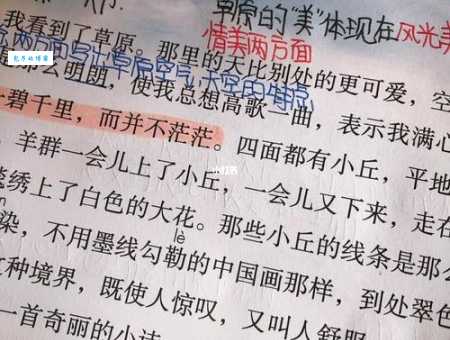 草原的“美”体现在风光美
情美两方面
我看到了草原。那里的天比别处的更可爱，空
方面写出草原空气、天空的特点
那么明朗，使我总想高歌一曲，表示我满心
碧千里，而并不茫茫。四面都有小丘，平地
小红书
。羊群一会儿上了小丘，一会儿又下来，走在
毯绣上了白色的大花。那些小丘的线条是那么
lè
染，不用墨线勾勒的中国画那样，到处翠色
种境界，既使人惊叹，又叫人舒服
一首奇丽的小诗